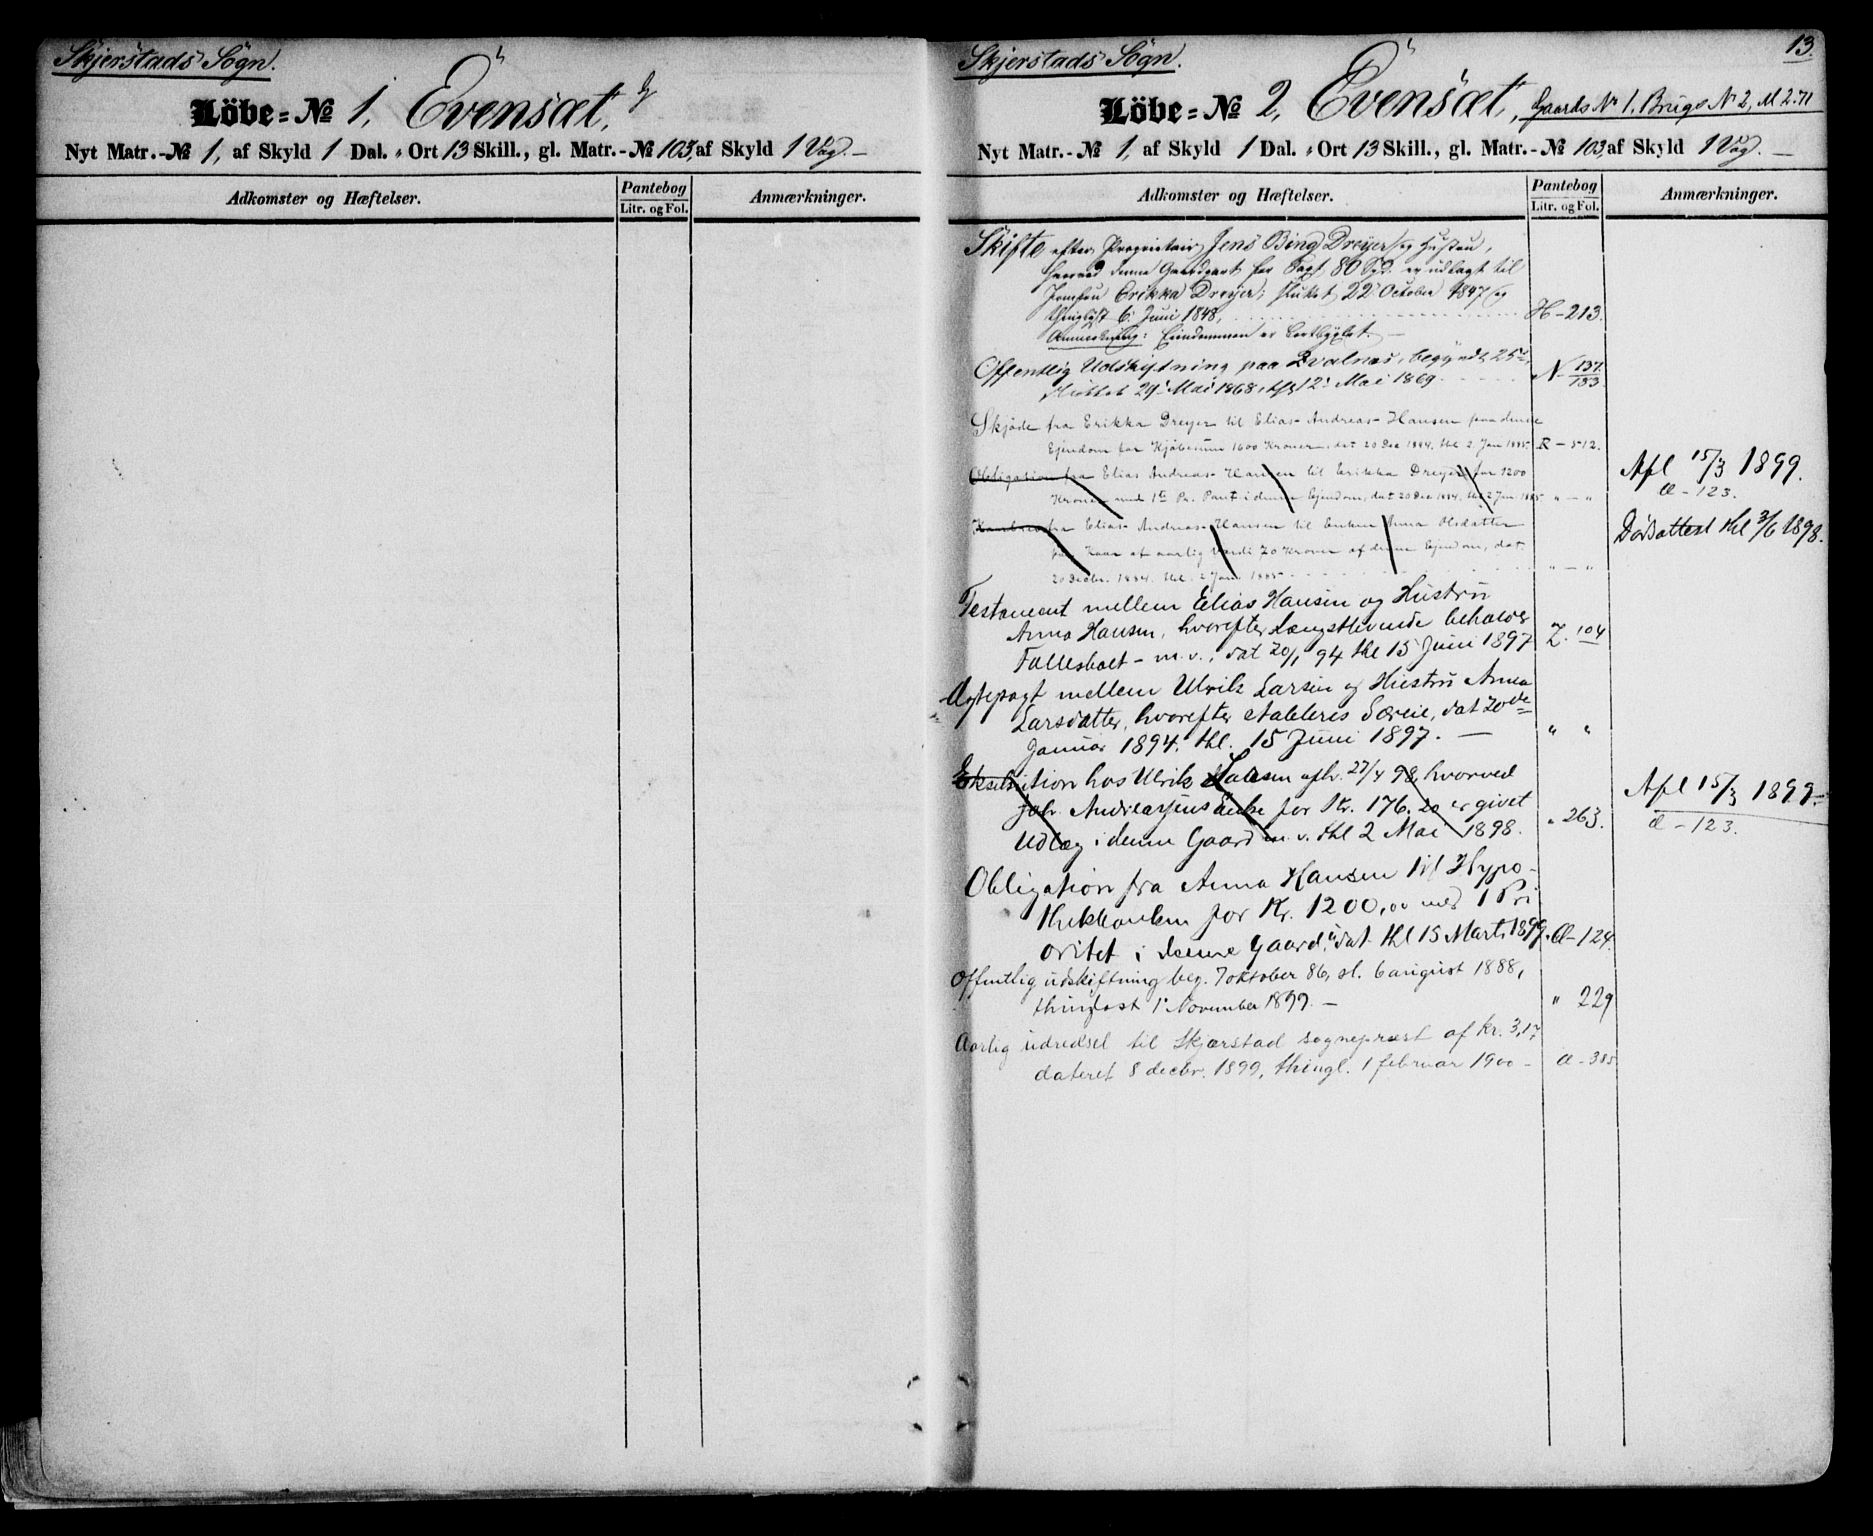 Skjerstads Sögn.
Löbe-№ 1, Evensæt,
Nyt Matr.-№ 1, af Skyld 1 Dal. " Ort 13 Skill., gl. Matr.-№ 103, af Skyld 1 Vog. —
Adkomster og Hæftelser.
Pantebog
Litr. og Fol.
Anmærkninger.
13
Skjerstads Sögn.
Löbe-№ 2, Evensæt, Gaards № 1, Brugs № 2, M 2.71
Nyt Matr.-№ 1, af Skyld 1 Dal. " Ort 13 Skill., gl. Matr.-№ 103, af Skyld 1 Vog. —
Adkomster og Hæftelser.
Pantebog
Litr. og Fol.
Anmærkninger.
Skifte efter Proprietair Jens Bing Dreyer og Hustru,
hvorved denne Gaardpart for Taxt 80 Spd. er udlagt til
Jomfru Erikka Dreyer; sluttet 22 October 1847 og
thinglyst 6 Juni 1848, H-213.
Anmærkning: Eiendommen er bortbyxlet. —
Offentlig Udskiftning paa Evalnes, begyndt 25de,
sluttet 29 Mai 1868, thl 12 Mai 1869. N-137/133
Skjöde fra Erikka Dreyer til Elias Andreas Hansen paa denne
Ejendom for Kjöbesum 1600 Kroner, dat 20 Dec 1884, thl 2 Jan 1885. R-512.
Obligation fra Elias Andreas Hansen til Erikka Dreyer for 1200
Kroner med 1te Pr. Pant i denne Ejendom, dat 20 Dec 1884, thl 2 Jan 1885 " — "
Afl 15/3 1899.
Æ-123.
Kontrakt fra Elias Andreas Hansen til Enken Anna Olsdatter
for Kaar af aarlig Værdi 20 Kroner af denne Ejendom, dat
20 Decbr. 1884. thl. 2 Jan. 1885 " — "
Dödsattest thl 3/6 1898.
Testament mellem Elias Hansen og Hustru
Anna Hansen, hvorefter Længstlevende beholder
Fællesboet m.v., dat 20/1 94 thl 15 Juni 1897 Z. 104
Ægtepagt mellem Ulrik Larsen og Hustru Anna
Larsdatter, hvorefter etableres Særeie, dat 20de
Januar 1894, thl. 15 Juni 1897. — " "
Eksekution hos Ulrik Larsen afh. 27/4 98, hvorved
Joh. Andreasens Enke for Kr. 176.20 er givet
Udlæg i denne Gaard m.v. thl 2 Mai 1898. " 263.
Afl 15/3 1899.
Æ-123.
Obligation fra Anna Hansen til Hypo-
thekbanken for Kr. 1200,00 med 1 Pri
oritet i denne Gaard, dat thl 15 Marts 1899. Æ-124.
Offentlig udskiftning beg. 7 oktober 86, sl. 6 august 1888,
thinglæst 1 November 1899. — " 229
Aarlig udredsel til Skjærstad sognepræst af kr. 3,17
dateret 8 decbr. 1899, thingl. 1 februar 1900 — Æ-385